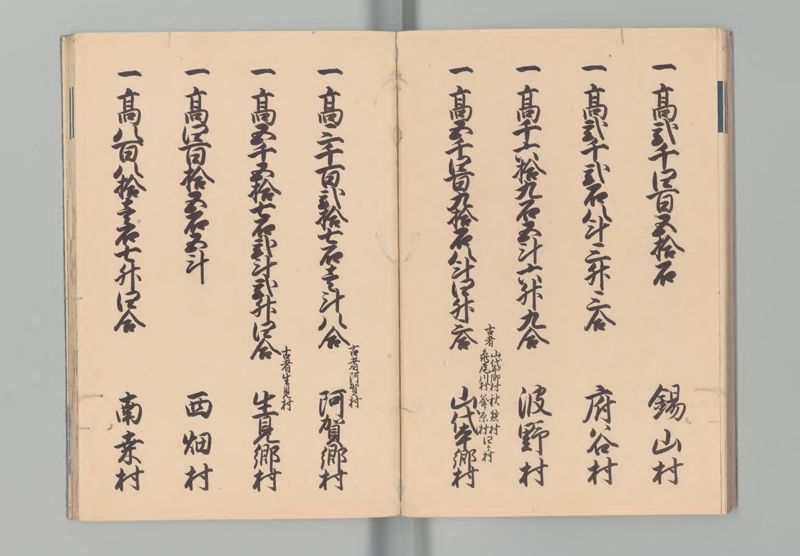 一 高弐千四百五拾石 錫山村
一 高弐千弐石八斗三升三合 府谷村
一 高千六拾九石五斗六升九合 波野村
一 高五千四百九拾石八斗四升二合 山代本郷村
古者
山代本郷村 秋掛村
一 高二千百弐拾七石壱斗八合 阿賀村
古者阿賀村
一 高五千五拾七石弐斗弐升四合 生見郷村
古者生見村
一 高四百拾五石五斗 西畑村
一 高八百八拾壱石七升四合 南桑村